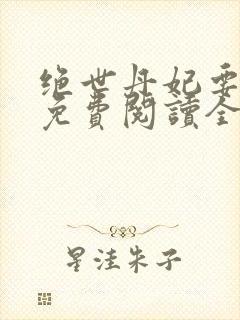 绝世丹妃要
免費閱讀全
星洼朱子